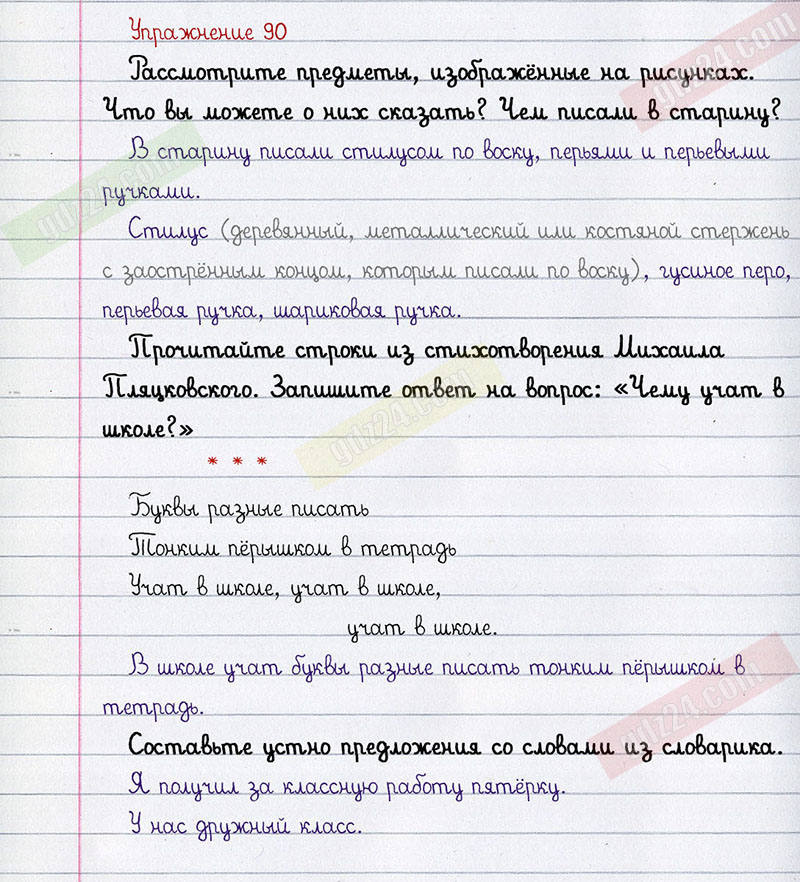 Упражнение 90
Рассмотрите предметы, изображённые на рисунках.
Что вы можете о них сказать? Чем писали в старину?
В старину писали стилусом по воску, перьями и перьевыми
ручками.
Стилус (деревянный, металлический или костяной стержень
с заострённым концом, которым писали по воску), гусиное перо,
перьевая ручка, шариковая ручка.
Прочитайте строки из стихотворения Михаила
Пляцковского. Запишите ответ на вопрос: «Чему учат в
школе?»
* * *
Буквы разные писать
Тонким пёрышком в тетрадь
Учат в школе, учат в школе,
учат в школе.
В школе учат буквы разные писать тонким пёрышком в
тетрадь.
Составьте устно предложения со словами из словарика.
Я получил за классную работу пятёрку.
У нас дружный класс.
gdz24.com
gdz24.com
gdz24.com
gdz24.com